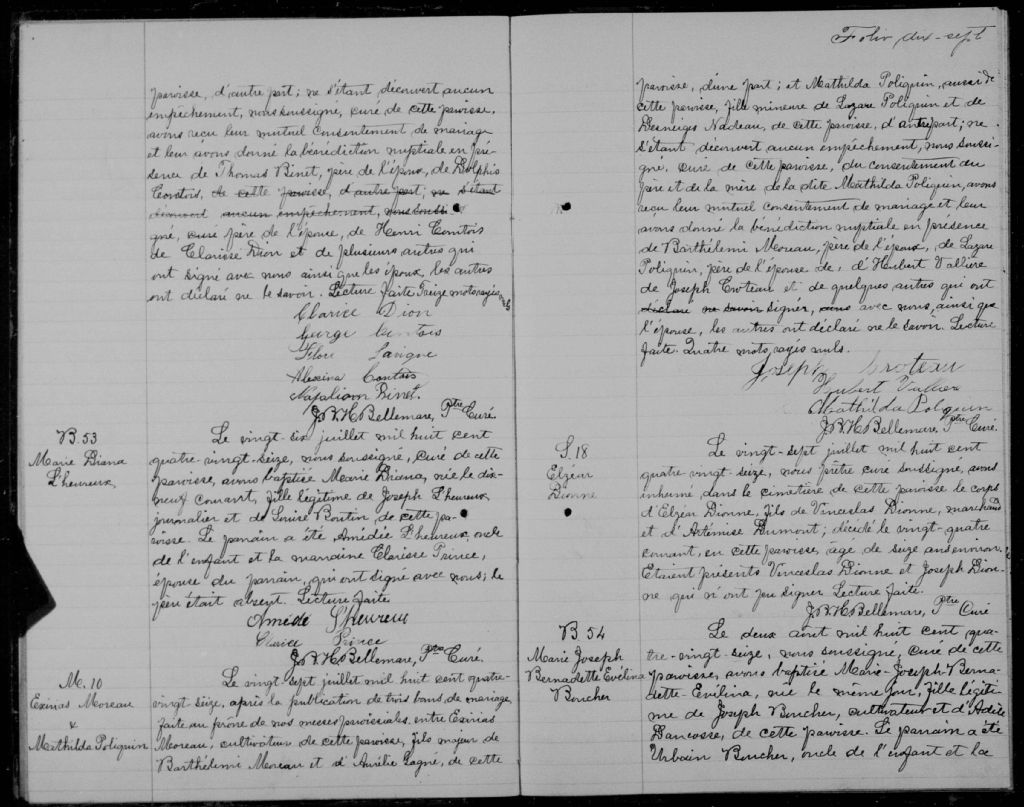 paroisse, d'autre part; ne s'étant découvert aucun
empêchement, nous soussigné, curé de cette paroisse,
avons reçu leur mutuel consentement de mariage
et leur avons donné la bénédiction nuptiale en pré-
sence de Thomas Binet, père de l'époux, de Delphis
Comtois, de cette paroisse, d'autre part; ne s'étant
découvert aucun empêchement, nous soussi
gné, curé père de l'épouse, de Henri Comtois
de Clarisse Dion et de plusieurs autres qui
ont signé avec nous ainsi que les époux, les autres
ont déclaré ne le savoir. Lecture faite Treize mots rayés nuls
Clarice Dion
George Comtois
Flore Lavigne
Alexina Comtois
Napoliom Binet
J.B.H. Bellemare, Ptre Curé.
B. 53
Marie Diana
L'heureux
Le vingt-six juillet mil huit cent
quatre-vingt-seize, nous soussigné, curé de cette
paroisse, avons baptisé Marie Diana, née le dix-
neuf courant, fille légitime de Joseph L'heureux
journalier et de Louise Boutin, de cette pa-
roisse. Le parrain a été Amédée L'heureux, oncle
de l'enfant et la marraine Clarisse Prince,
épouse du parrain, qui ont signé avec nous; le
père était absent. Lecture faite
Amede L'heureux
Clarice Prince
J.B.H. Bellemare, Ptre Curé.
M. 10
Exinias Moreau
&
Mathilda Poliquin
Le vingt sept juillet mil huit cent quatre-
vingt-seize, après la publication de trois bans de mariage,
faite au prône de nos messes paroissiales, entre Exinias
Moreau, cultivateur de cette paroisse, fils majeur de
Barthélemi Moreau et d'Aurélie Gagné, de cette
Folio dix-sept
paroisse, d'une part; et Mathilda Poliquin, aussi de
cette paroisse, fille mineure de Lazare Poliquin et de
Desneiges Nadeau, de cette paroisse, d'autre part; ne
s'étant découvert aucun empêchement, nous soussi-
gné, curé de cette paroisse, du consentement du
père et de la mère de la dite Mathilda Poliquin, avons
reçu leur mutuel consentement de mariage et leur
avons donné la bénédiction nuptiale en présence
de Barthélemi Moreau, père de l'époux, de Lazare
Poliquin, père de l'épouse de d'Hubert Vallière
de Joseph Croteau et de quelques autres qui ont
déclaré ne savoir signer, ains avec nous, ainsi que
l'épouse, les autres ont déclaré ne le savoir. Lecture
faite. Quatre mots rayés nuls.
Joseph Croteau
Hubert Valliere
Mathilda Poliquin
J.B.H. Bellemare, Ptre Curé.
S. 18
Elzéar
Dionne
Le vingt-sept juillet mil huit cent
quatre vingt-seize, nous prêtre curé soussigné, avons
inhumé dans le cimetière de cette paroisse le corps
d'Elzéar Dionne, fils de Vinceslas Dionne, marchand
et d'Artémise Dumont; décédé le vingt-quatre
courant, en cette paroisse, âgé de seize ans environ.
Etaient présents Vinceslas Dionne et Joseph Dion-
ne qui n'ont pu signer. Lecture faite.
J.B.H. Bellemare, Ptre Curé
B 54
Marie Joseph
Bernadette Evélina
Boucher
Le deux août mil huit cent qua-
tre-vingt-seize, nous soussigné, curé de cette
paroisse, avons baptisé Marie-Joseph-Berna-
dette-Evélina, née le même jour, fille légiti-
me de Joseph Boucher, cultivateur et d'Adèle
de cette paroisse. Le parrain a été
Urbain Boucher, oncle de l'enfant et la